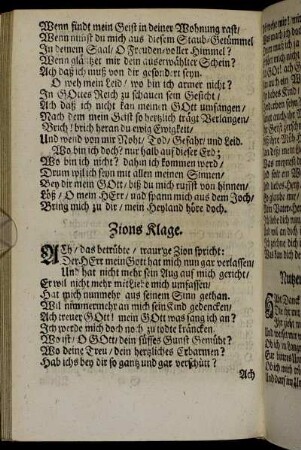 Wenn findt mein Geist in deiner Wohnung rast/
Wenn nimst du mich aus diesem Staub-Getümmel
In deinem Saal/ O Freuden-voller Himmel?
Wenn gläntzet mir dein auserwählter Schein?
Ach daß ich muß von dir gesondert seyn.
O weh mein Leid/ wo bin ich armer nicht?
In GOttes Reich zu schauen sein Gesicht/
Ach daß ich nicht kan meinen GOtt umfangen/
Nach dem mein Geist so hertzlich trägt Verlangen/
Brich/ brich heran du ewig Ewigkeit/
Und wend von mir Noht/ Tod/ Gefahr/ und Leid.
Wo bin ich doch? nur halb auf dieser Erd;
Wo bin ich nicht? dahin ich kommen werd/
Drum wil ich seyn mit allen meinen Sinnen/
Bey dir mein GOtt/ biß du mich ruffst von hinnen/
Löß/ O mein HErr/ und spann mich aus dem Joch/
Bring mich zu dir/ mein Heyland höre doch.
Zions Klage.
Ach/ das betrübte/ traurge Zion spricht:
Der HErr mein Gott hat mich nun gar verlassen/
Und hat nicht mehr sein Aug auf mich gericht/
Er wil nicht mehr mit Liebe mich umfassen/
Hat mich nunmehr aus seinem Sinn gethan.
Wil nimmermehr an mich sein Kind gedencken/
Ach treuer GOtt! mein GOtt was fang ich an?
Ich werde mich doch noch zu todte kräncken.
Wo ist/ O GOtt/ dein süsses Gunst Gemüht?
Wo deine Treu/ dein hertzliches Erbarmen?
Hab ichs bey dir so gantz und gar verschütt?
Ach